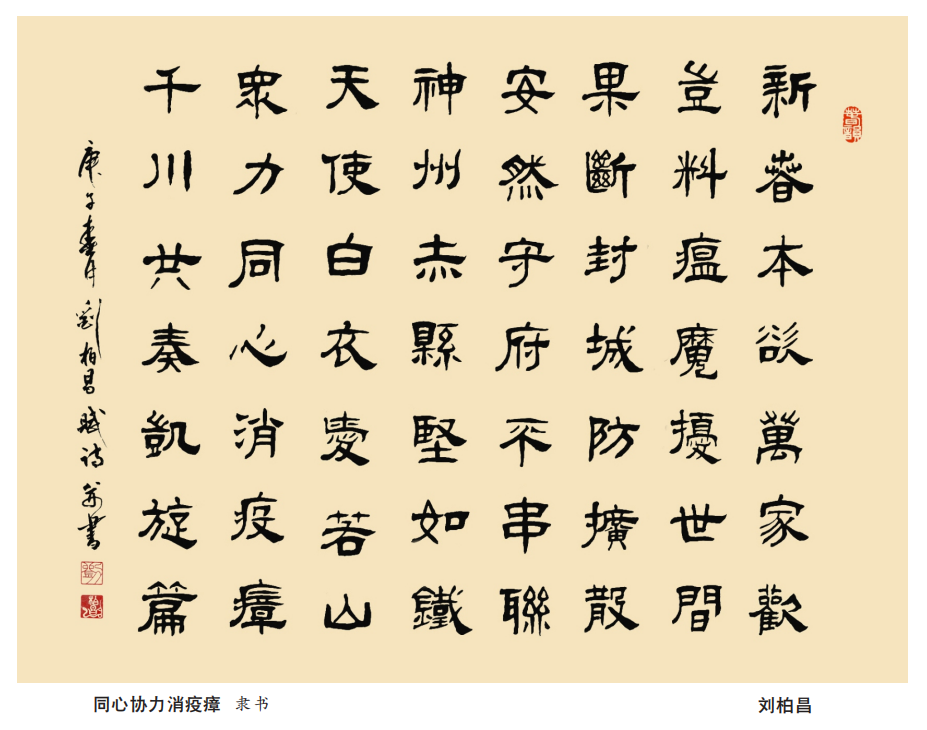 新春本欲萬家歡
豈料瘟魔擾世間
果斷封城防擴散
安然守府不串聯
神州赤縣堅如鐵
天使白衣愛若山
眾力同心消疫瘴
千川共奏凱旋篇
庚子春月劉柏昌賦诗並書
同心协力消疫瘴 隶书
刘柏昌